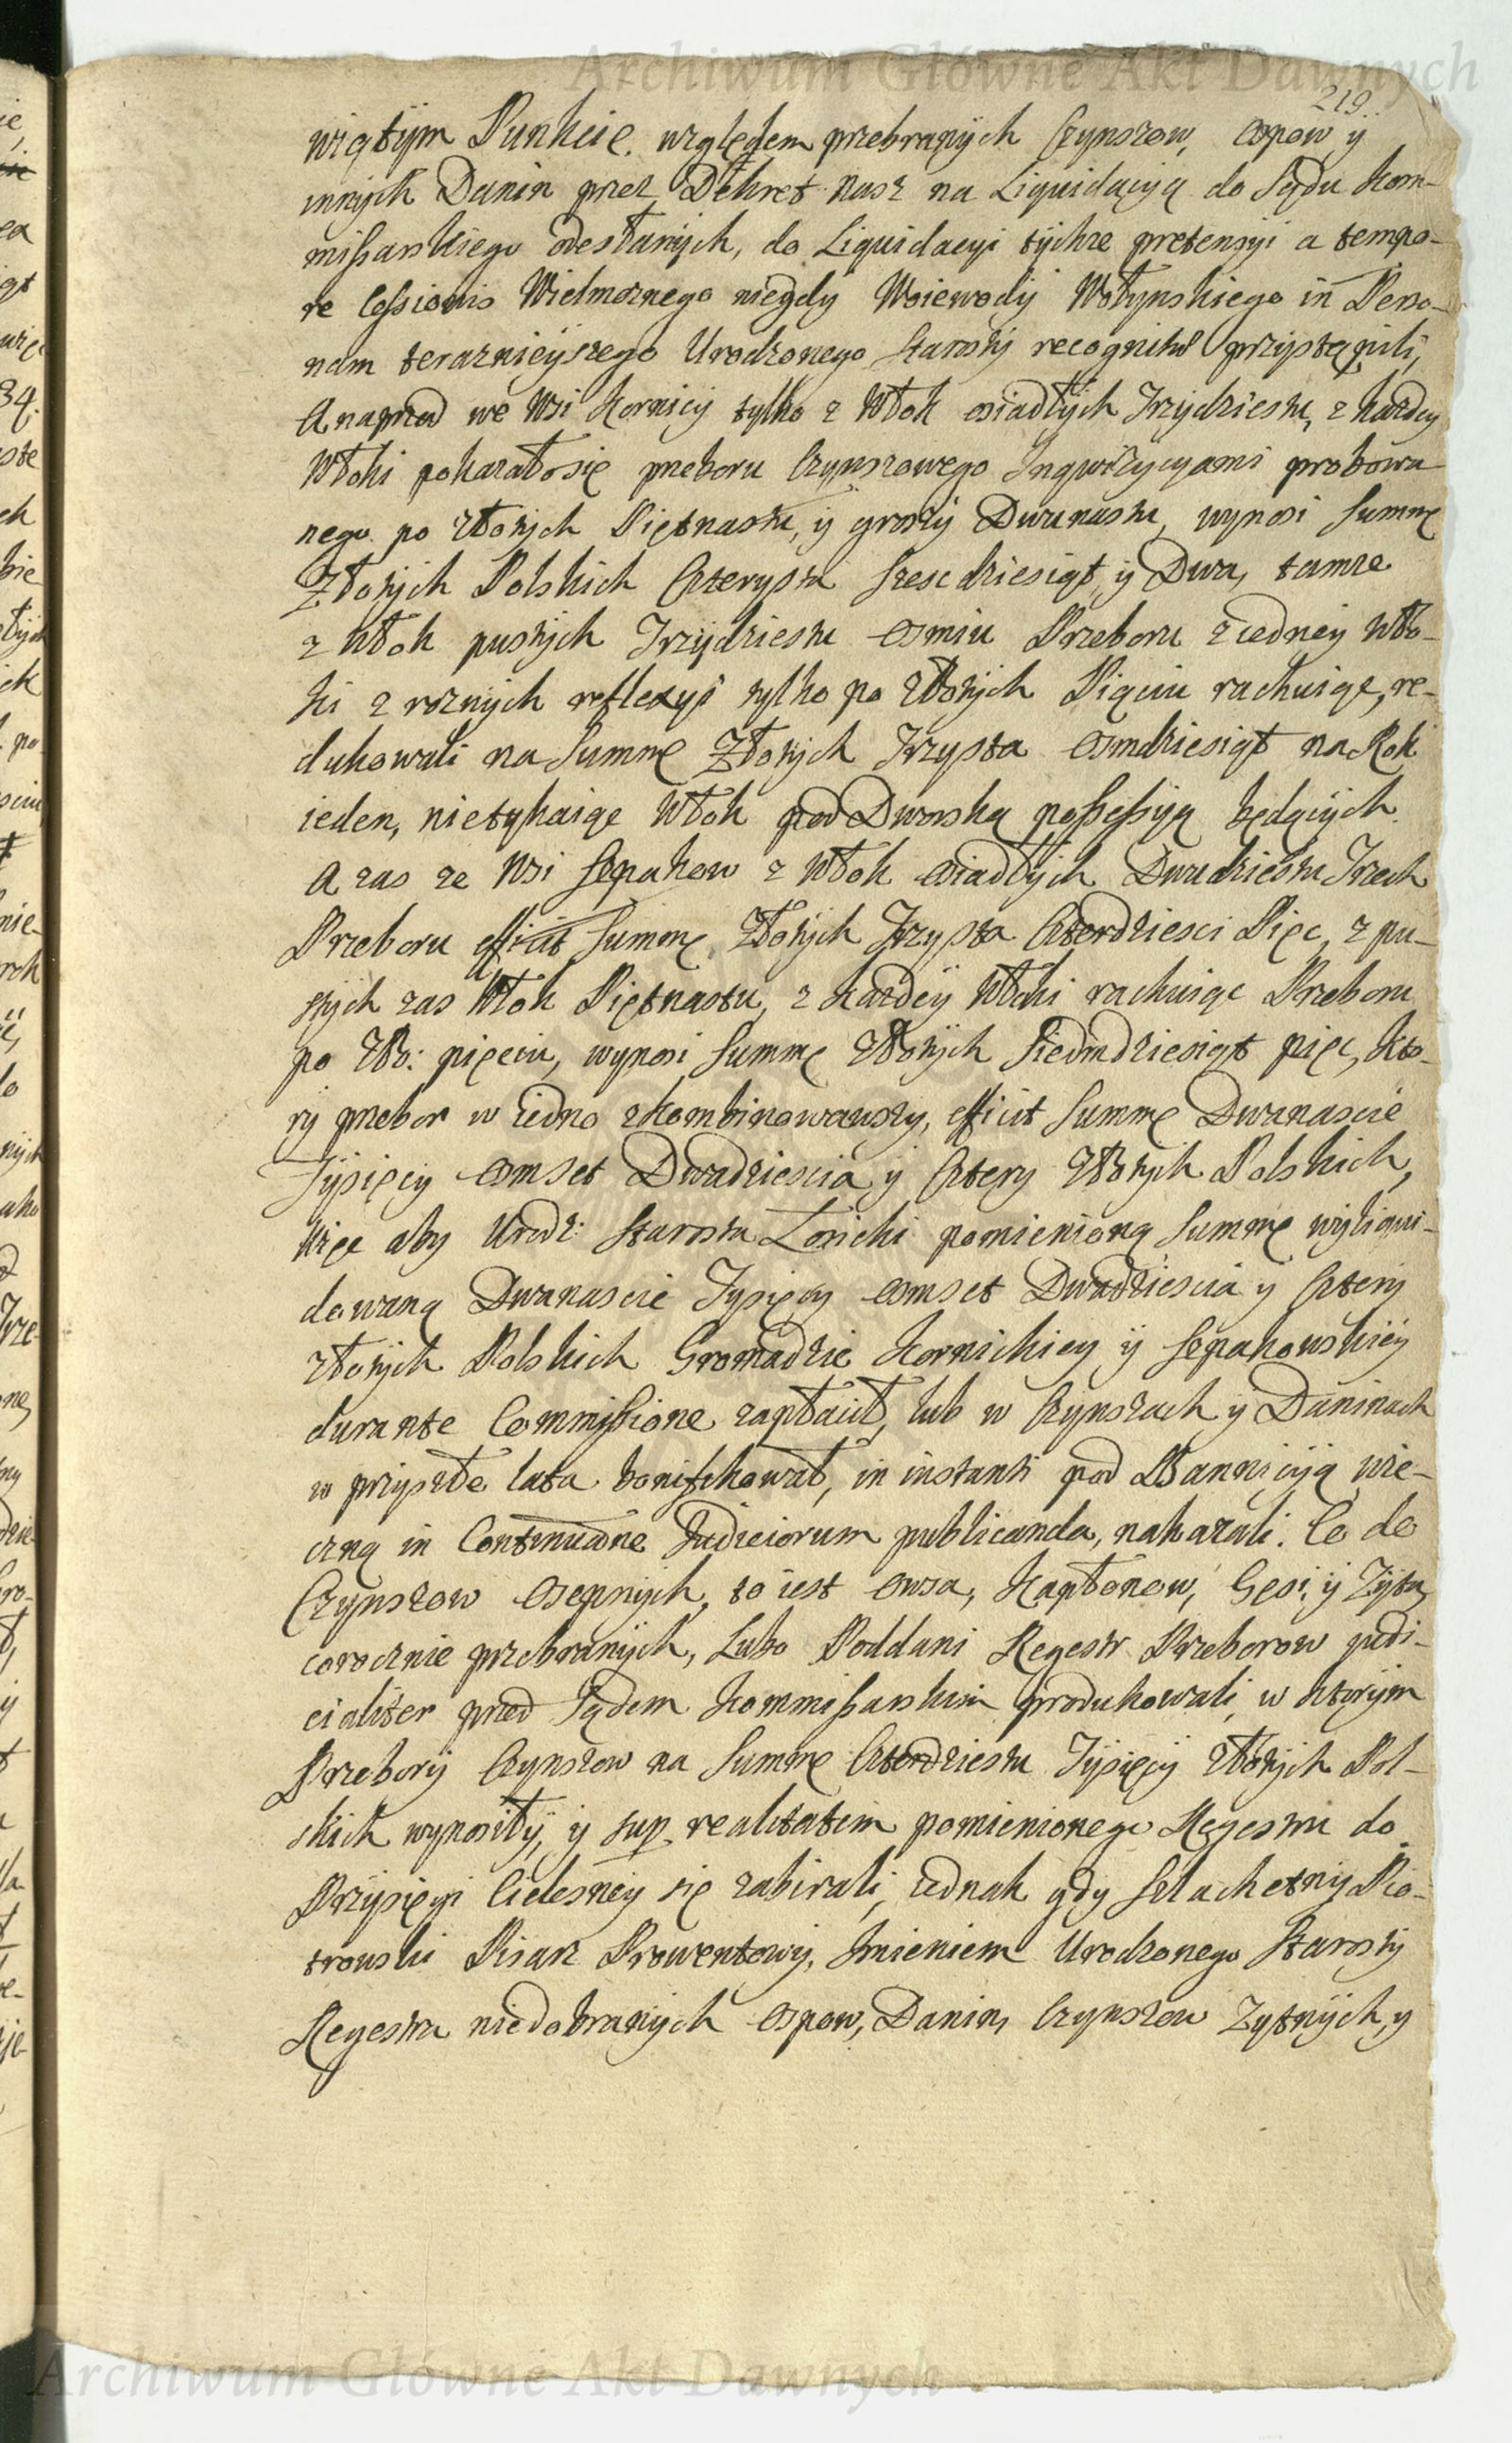 Archiwum Główne Akt Dawnych
219.
wiątym Punkcie względem przebranych Czynszow, Ospow y
innych Danin przez Dekret nasz na Liquidacyą do Sądu Kom-
missarskiego odesłanych, do Liquidacyi tychze pretensyi a tempo-
re Cessionis Wielmoznego niegdy Woiewody Wołynskiego in Perso-
nam teraznieyszego Urodzonego Starosty recognitæ przystąpili,
A naprzod we Wsi Kornicy tylko z Włok osiadłych Trzydziestu, z kazdey
Włoki pokazało się przeboru Czynszowego Inqwizycyami probowa-
nego po złotych Piętnastu, y groszy Dwunastu, wynosi Summę
Złotych Polskich Czterysta Szescdziesiąt, y Dwa, tamze
z Włok pustych Trzydziestu Osmiu Przeboru z iedney Wło-
ki z roznych reflexyi tylko po złotych Pięciu rachuiąc, re-
dukowali na Summę Złotych Trzysta Osmdziesiąt na Rok
ieden, nietykaiąc Włok pod Dworską possessyą będących.
A zas ze Wsi Szpakow z Włok osiadłych Dwudziestu Trzech
Przeboru efficit Summę Złotych Trzysta Czterdziesci Pięc, z pu-
stych zas Włok Piętnastu, z kazdey Włoki rachuiąc Przeboru
po Zło: pięciu, wynosi Summę Złotych Siedmdziesiąt pięc, Kto-
ry przebor w iedno zkombinowawszy, efficit Summę Dwanascie
Tysięcy Osmset Dwadziescia y Cztery Złotych Polskich,
Więc aby Urodz: Starosta Łosicki pomienioną Summę wyliqui-
dowaną Dwanascie Tysięcy Osmset Dwadziescia y Cztery
złotych Polskich Gromadzie Kornickiey y Szpakowskiey
durante Commissione zapłacił, lub w Czynszach y Daninach
w przyszłe lata bonifikował, in instanti pod Bannicyą wie-
czną in Continuaõne Judiciorum publicanda, nakazali. Co do
Czynszow Osepnych, to iest Owsa, Kapłonow, Gęsi, y Zyta,
corocznie przebranych, Lubo Poddani Regestr Przeborow judi-
cialiter przed Sądem Kommissarskim produkowali, w ktorym
Przebory Czynszow na Summę Czterdziestu Tysięcy Złotych Pol-
skich wynosiły, y sup. realitatem pomienionego Regestru do
Przysięgi Cielesney się zabirali, iednak gdy Szlachetny Pio-
trowski Pisarz Prowentowy, Imieniem Urodzonego Starosty
Regestra niedobranych Ospow, Danin, Czynszow Zytnych, y
Archiwum Główne Akt Dawnych